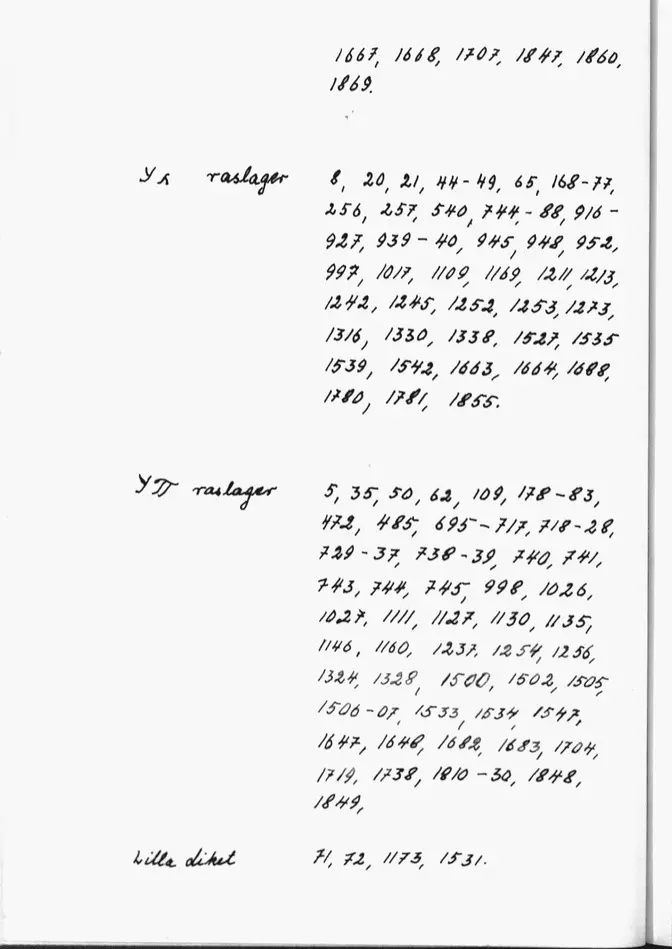 1667, 1668, 1707, 1847, 1860,
1869.
УЛ raslager 8, 20, 21, 44-49, 65, 168-77,
256, 257, 540, 744-88, 916-
927, 939-40, 945, 948, 952,
997, 1017, 1109, 1169, 1211, 1213,
1242, 1245, 1252, 1253, 1273,
1316, 1330, 1338, 1527, 1535
1539, 1542, 1663, 1664, 1688,
1780, 1781, 1855.
УП raslager 5, 35, 50, 62, 109, 178-83,
472, 485, 695-717, 718-28,
729-37, 738-39, 740, 741,
743, 744, 745, 998, 1026,
1027, 1111, 1127, 1130, 1135,
1146, 1160, 1237, 1254, 1256,
1324, 1328, 1500, 1502, 1505,
1506-07, 1533, 1534, 1547,
1647, 1648, 1682, 1683, 1704,
1719, 1738, 1810-30, 1848,
1849,
Lilla diket 71, 72, 1173, 1531.